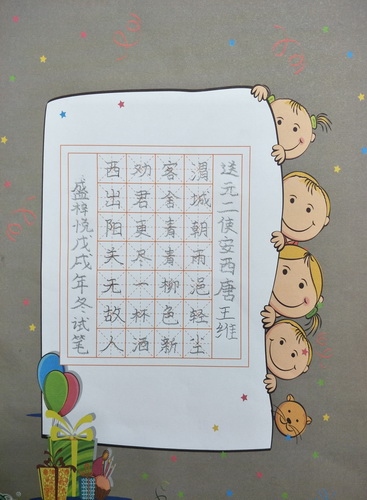 送元二使安西唐王维
渭城朝雨浥轻尘
客舍青青柳色新
劝君更尽一杯酒
西出阳关无故人
盛梓悦戊戌年冬试笔